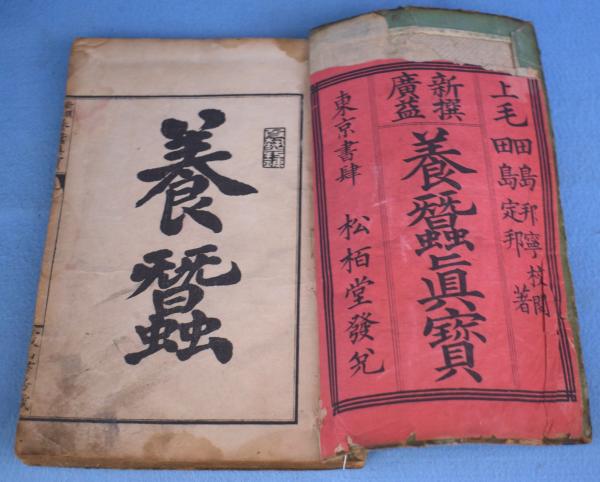 上毛
田島邦寧校閲
田島定邦著
新撰
廣益
養蠶眞寶
東京書肆 松栢堂發兌
養蠶